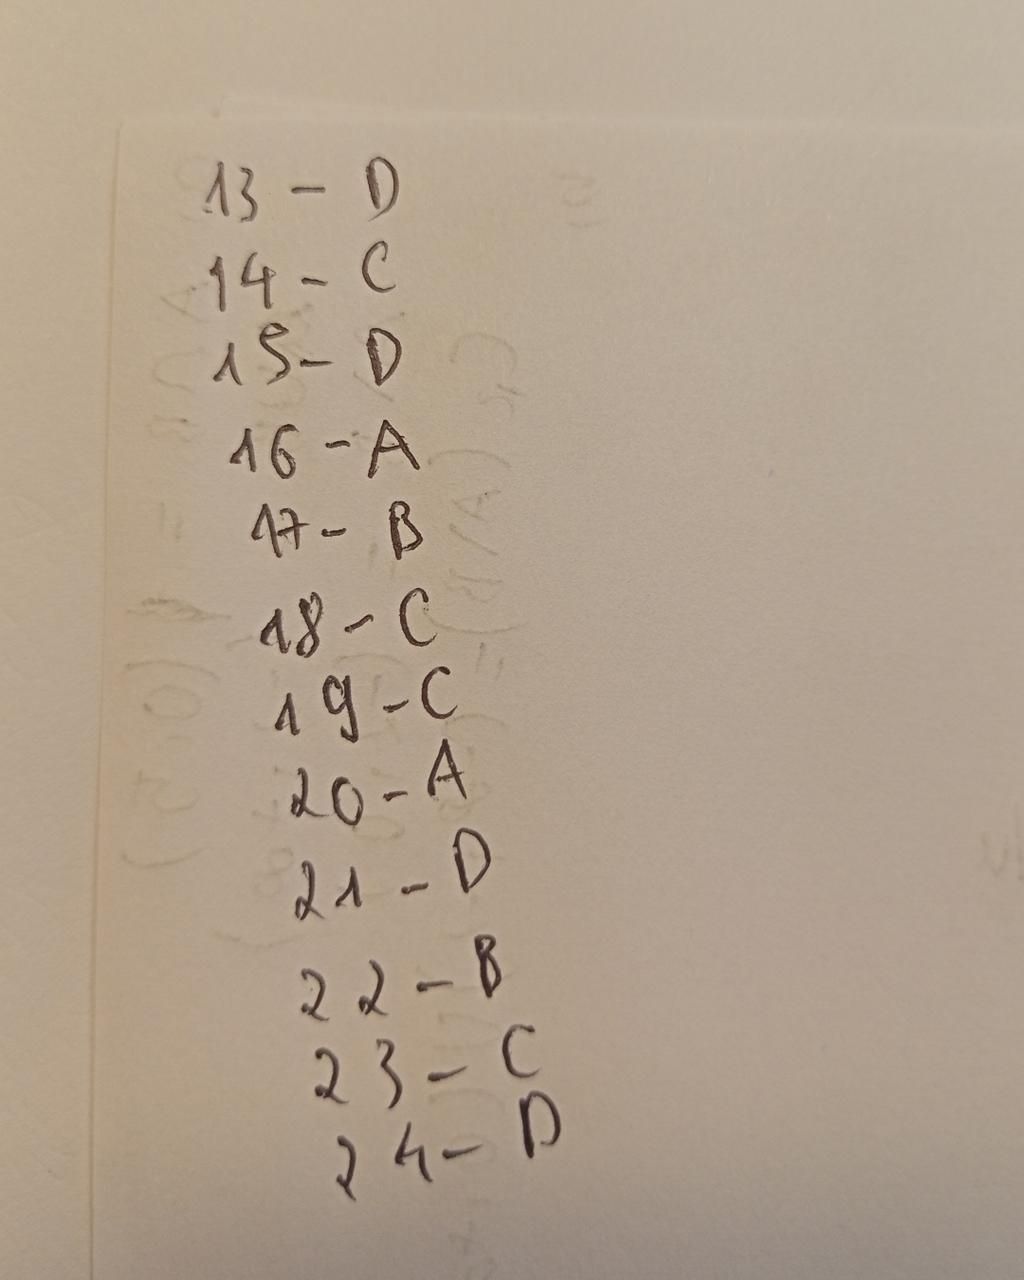 13 - D
14 - C
15 - D
16 - A
17 - B
18 - C
19 - C
20 - A
21 - D
22 - B
23 - C
24 - D